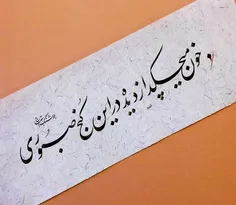 خون میچکد از دیده در این کنج صبوری